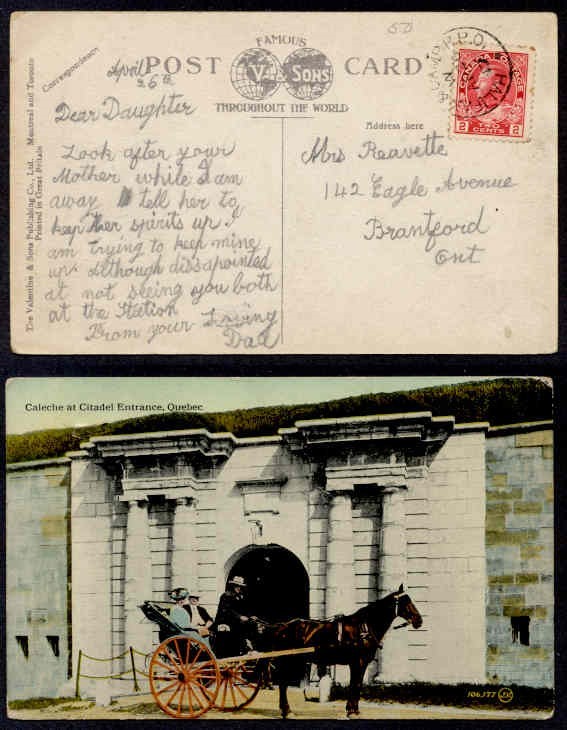 50
Correspondence
FAMOUS
POST CARD
V & SONS
THROUGHOUT THE WORLD
The Valentine & Sons Publishing Co., Ltd. Montreal and Toronto
Printed in Great Britain
April
26th
Dear Daughter
Look after your
Mother while I am
away tell her to
keep her spirits up I
am trying to keep mine
up. Although dissapointed
at not seeing you both
at the Station
From your Loving
Dad
Address here
Mrs Reavette
142 Eagle Avenue
Brantford
Ont
R.P.O.
CANADA POSTAGE
2 TWO CENTS 2
Caleche at Citadel Entrance, Quebec
106,177 JV